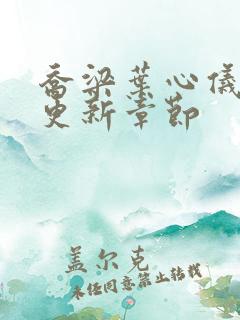 乔梁叶心仪
更新章节
盖尔克
未经同意禁止转载